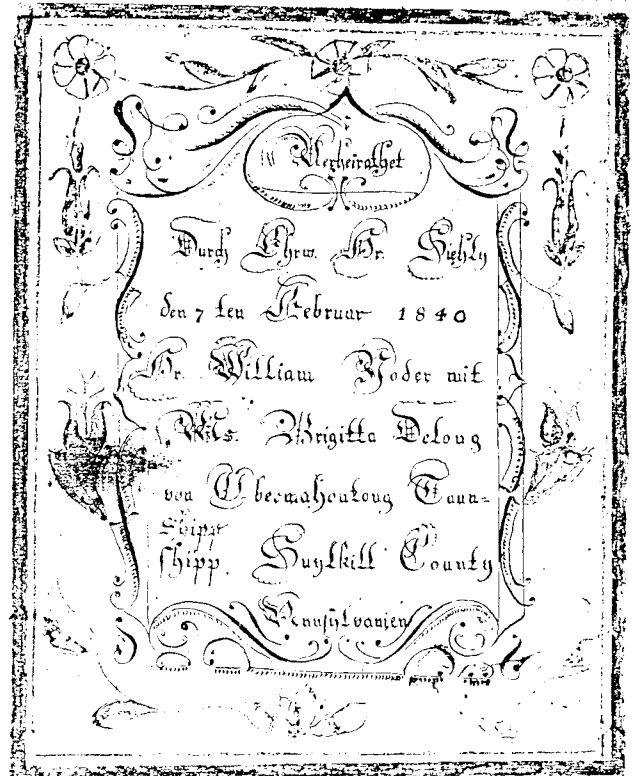 Verheirathet
Durch Ehrw. Hr.
den 7 ten Februar 1840
Hr. William Yoder mit
Ms. Brigitta Delong
von Obermahontong Taun=
shipp
shipp. Suylkill County
Pennsylvanien